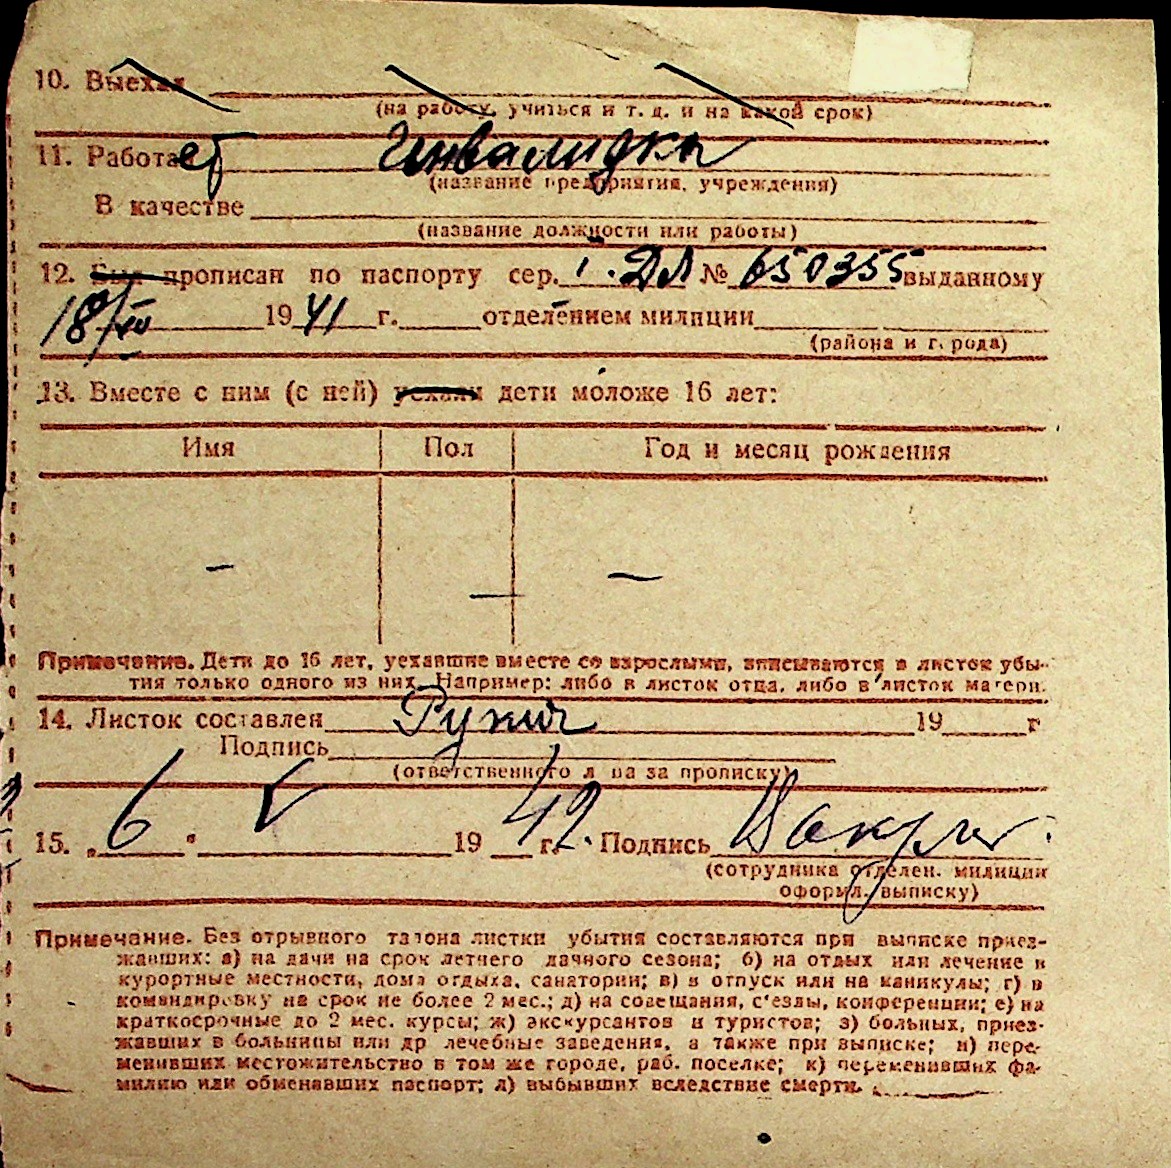 10. Выехал
(на работу, учиться и т. д. и на какой срок)
11. Работает Инвалидка
(название предприятия, учреждения)
В качестве
(название должности или работы)
12. Был прописан по паспорту сер. I. ДЛ № 650355 выданному
18/XII 1941 г. отделением милиции
(района и города)
13. Вместе с ним (с ней) уехали дети моложе 16 лет:
Имя Пол Год и месяц рождения
— — —
Примечание. Дети до 16 лет, уехавшие вместе со взрослыми, вписываются в листок убы-
тия только одного из них. Например: либо в листок отца, либо в листок матери.
14. Листок составлен 19 г
Подпись
(ответственного лица за прописку)
15. „6" V 1942 г. Подпись
(сотрудника отделен. милиции
оформ. выписку)
Примечание. Без отрывного талона листки убытия составляются при выписке приез-
жавших: а) на дачи на срок летнего дачного сезона; б) на отдых или лечение в
курортные местности, дома отдыха, санатории; в) в отпуск или на каникулы; г) в
командировку на срок не более 2 мес.; д) на совещания, с'езды, конференции; е) на
краткосрочные до 2 мес. курсы; ж) экскурсантов и туристов; з) больных, приез-
жавших в больницы или др лечебные заведения, а также при выписке; и) пере-
менивших местожительство в том же городе, раб. поселке; к) переменивших фа-
милию или обменявших паспорт; л) выбывших вследствие смерти.